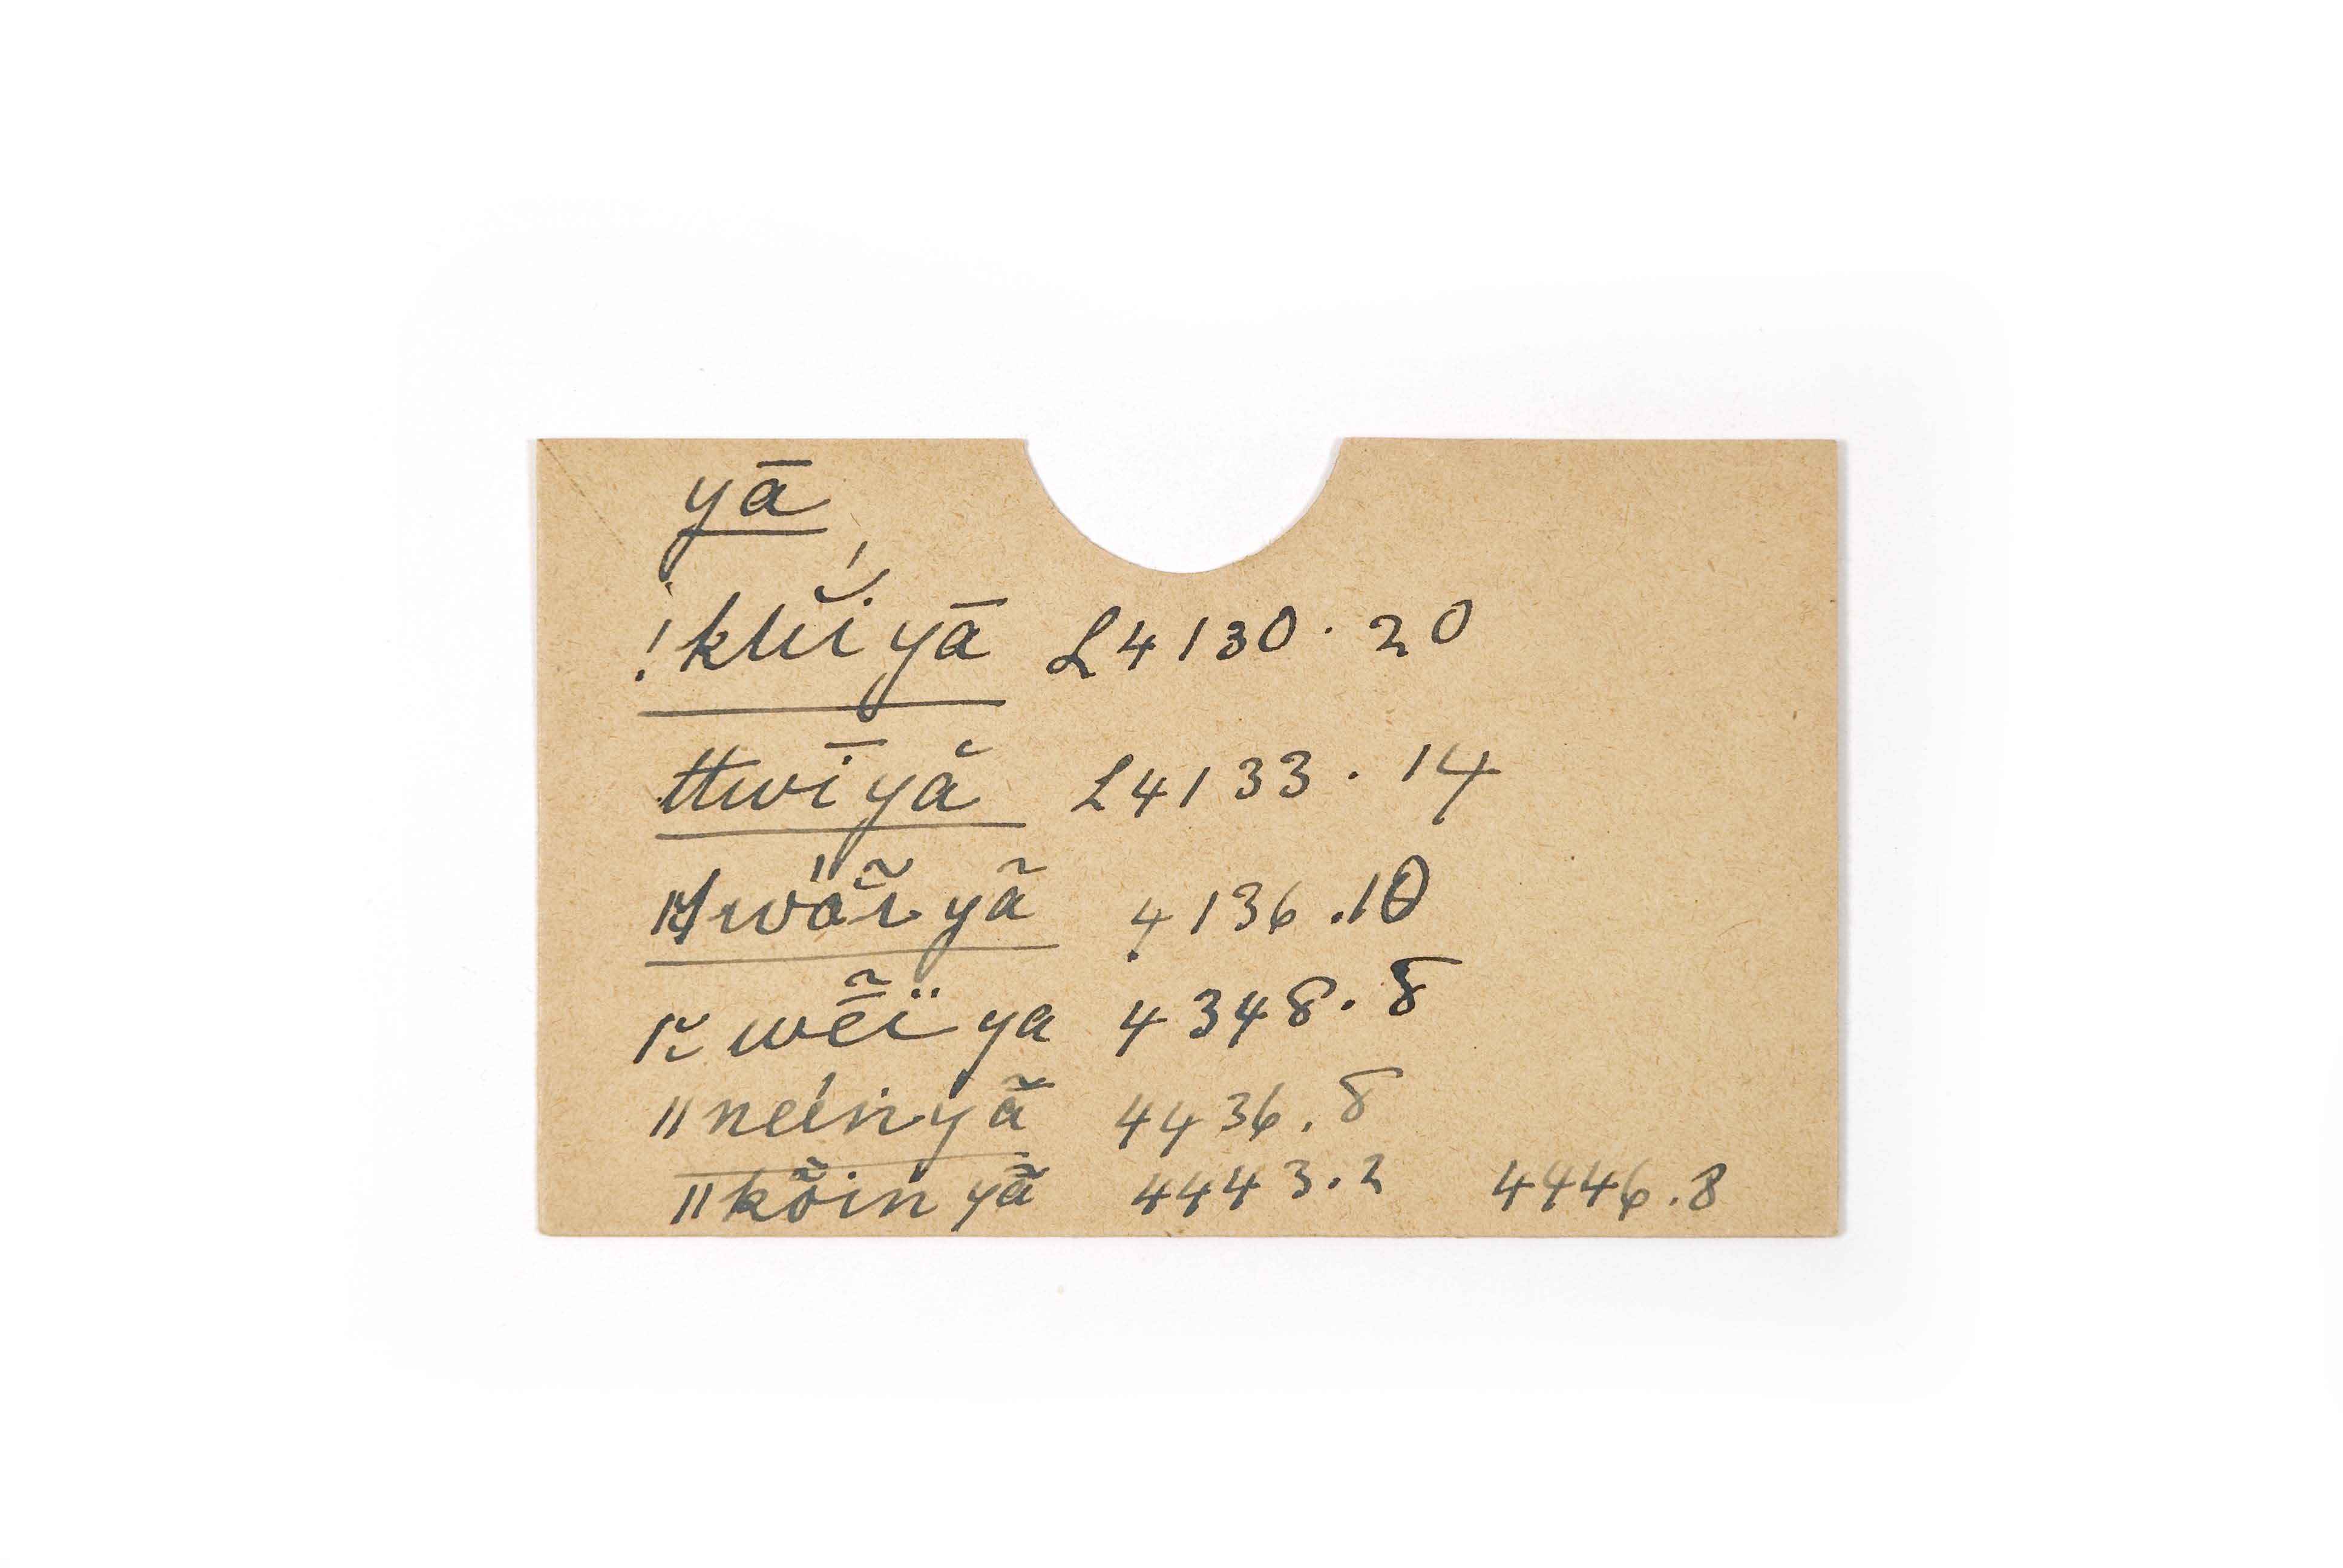 yā
!kŭ́i yā L4130.20
ttwī yă L4133.14
yã 4136.10
wẽ̄ï ya 4348.8
||néin yã̄ 4436.8
||kṏin yã̄ 4443.2 4446.8